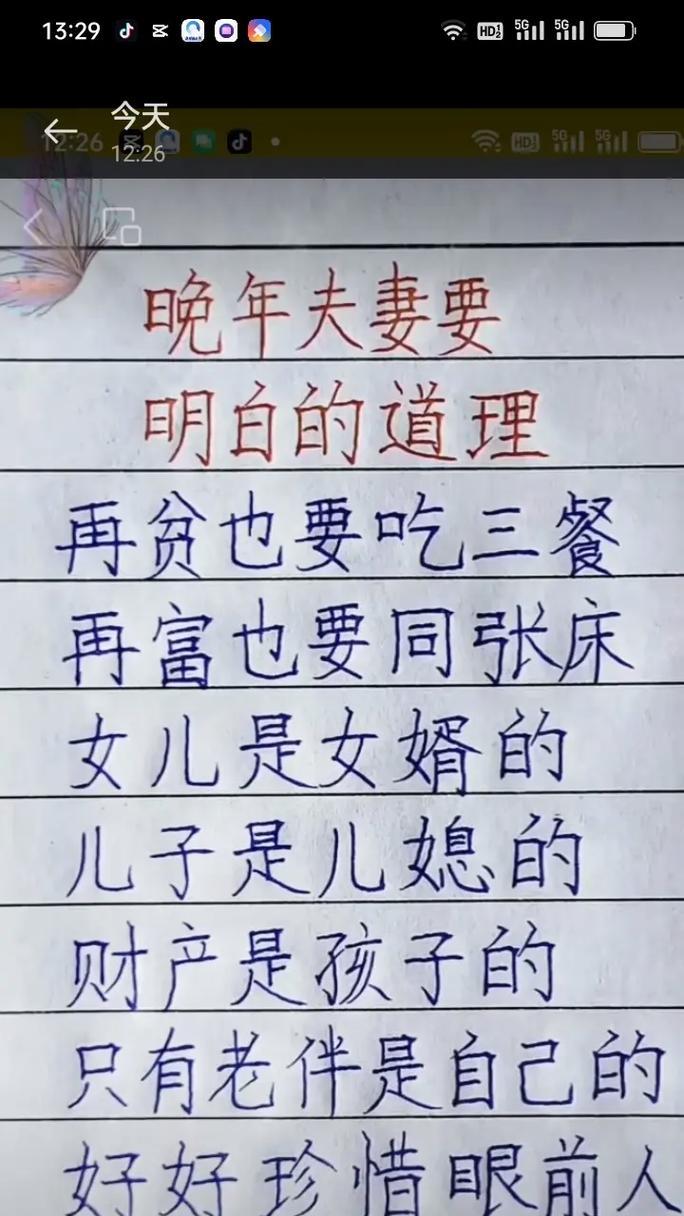 13:29
HD2 5G 5G
今天
12:26
12:26
HD 5G 5G
晚年夫妻要
明白的道理
再贫也要吃三餐
再富也要同张床
女儿是女婿的
儿子是儿媳的
财产是孩子的
只有老伴是自己的
好好珍惜眼前人